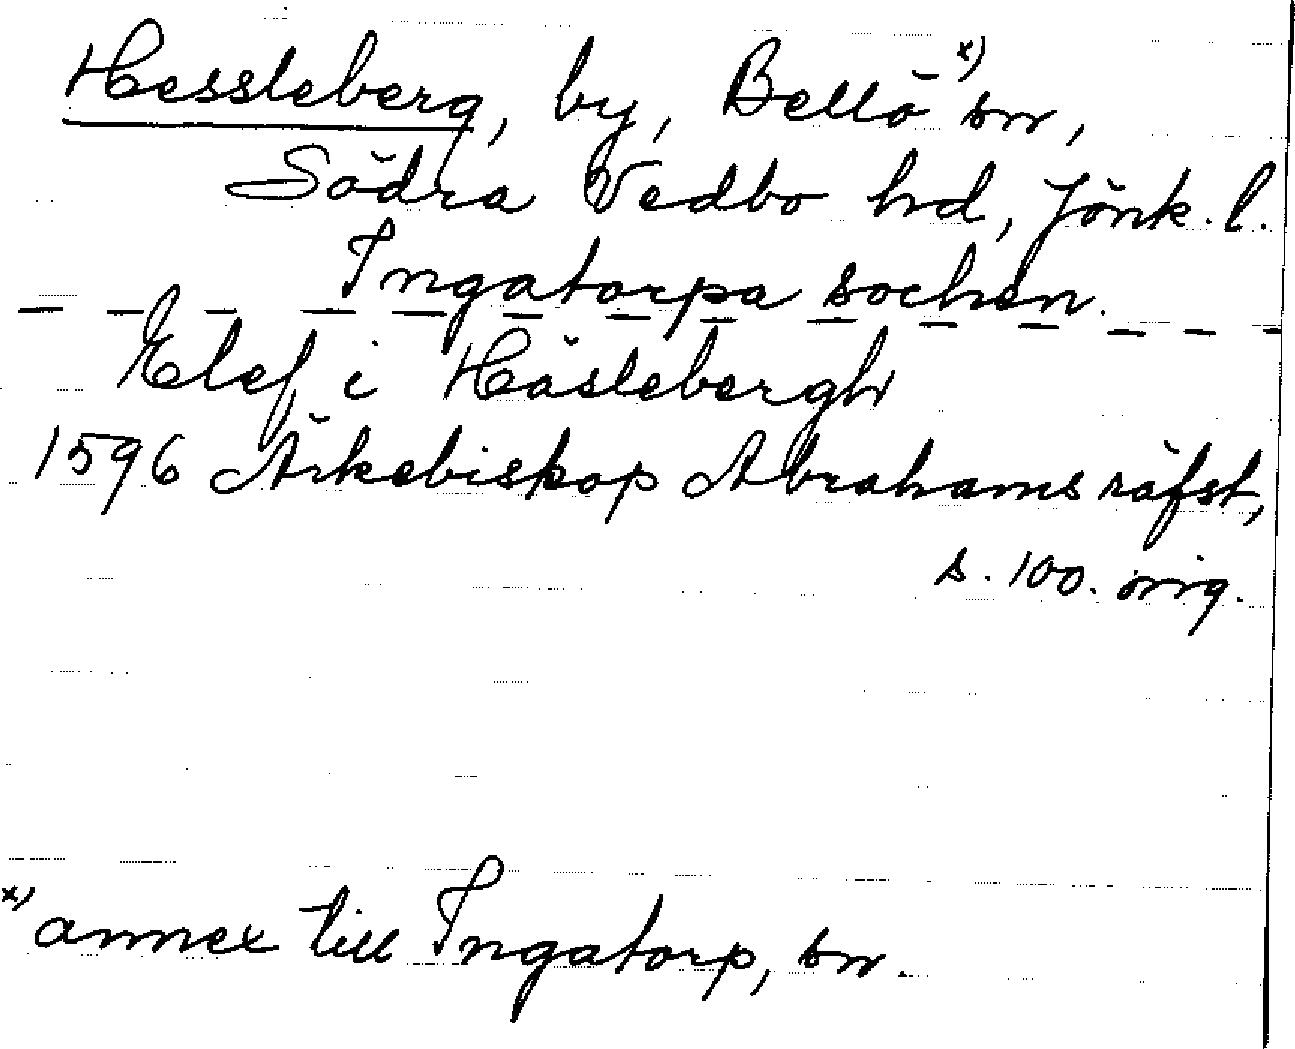 Hessleberg, by, Bellö x) sn,
Södra Vedbo hd, Jönk. l.
Ingatorpa sochen.
Elef i Häslebergh
1596 Ärkebiskop Abrahams räfst,
s. 100. orig.
x) annex till Ingatorp, sn.